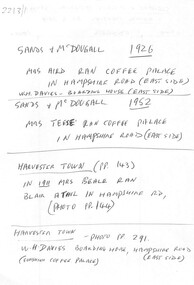 2213/1
SANDS & McDOUGALL 1926
MRS AIRD RAN COFFEE PALACE
IN HAMPSHIRE ROAD (EAST SIDE)
W.H. DAVIES - BOARDING HOUSE (EAST SIDE)
SANDS & McDOUGALL 1952
MRS TEESE RAN COFFEE PALACE
IN HAMPSHIRE ROAD (EAST SIDE)
HARVESTER TOWN (PP. 143)
IN 1911 MRS BEALE RAN
BLAIR ATHOL IN HAMPSHIRE RD,
(PHOTO PP. 144)
HARVESTER TOWN - PHOTO PP. 291.
W.H DAVIES BOARDING HOUSE, HAMPSHIRE ROAD
COFFEE PALACE) (EAST SIDE)